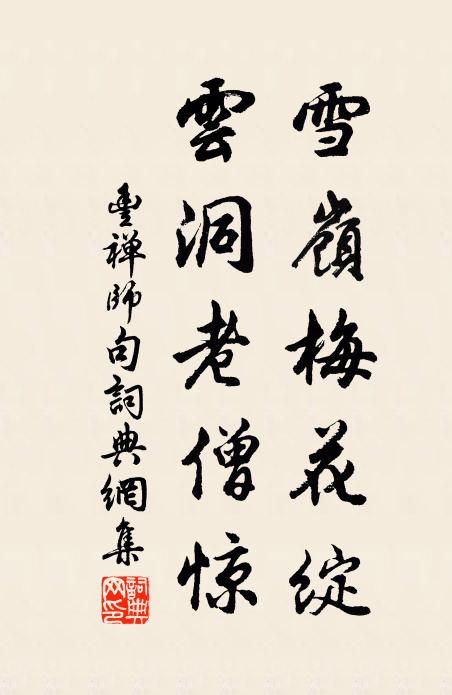 雪嶺梅花綻
雲洞老僧惊
豊禅師句詞典網集
詞典网印